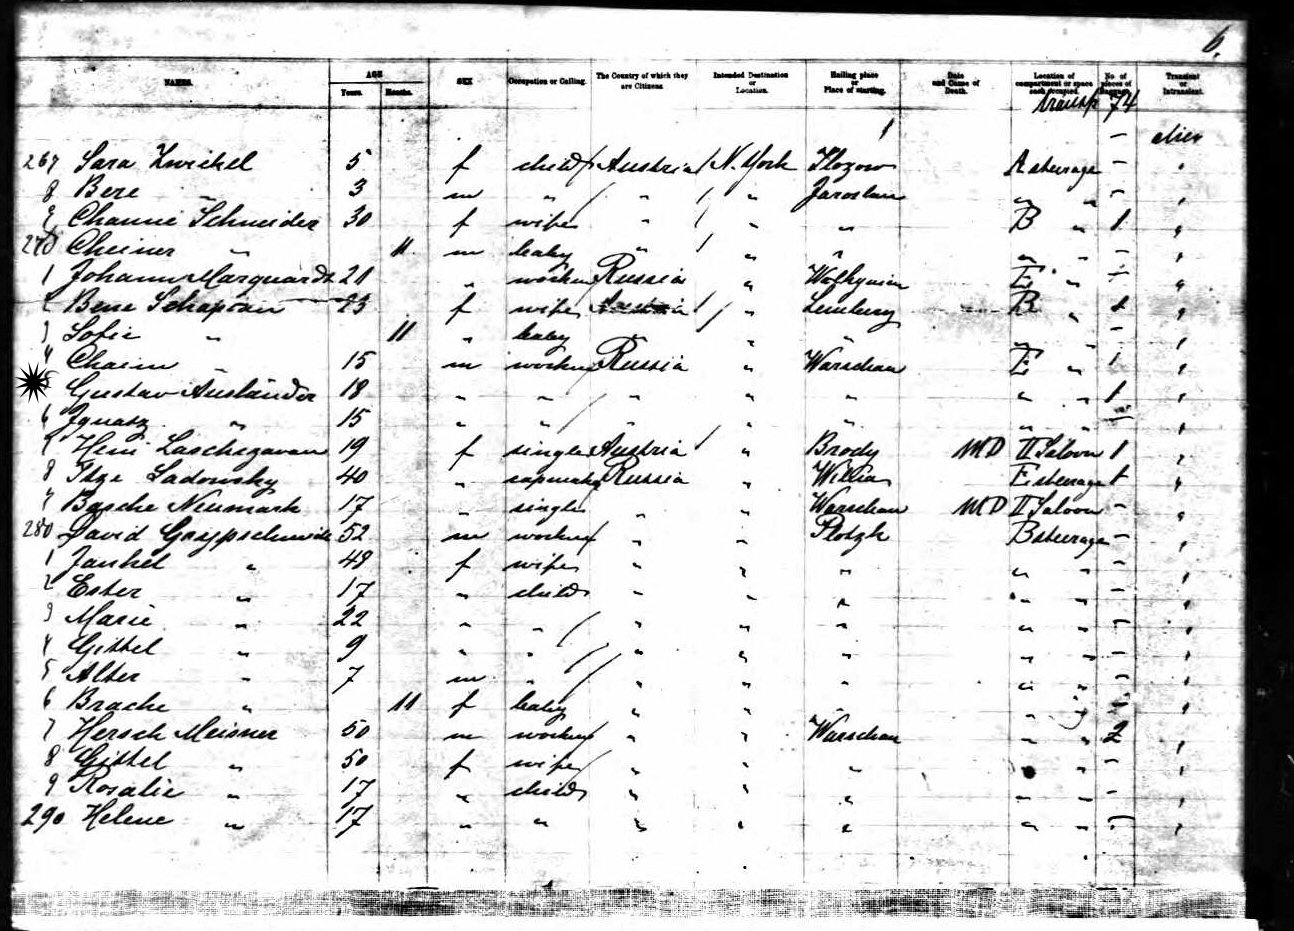 6.
NAMES. AGE Years. Months. SEX Occupation or Calling. The Country of which they are Citizens Intended Destination or Location. Hailing place or Place of starting. Date and Cause of Death. Location of compartment or space each occupied. No. of pieces of Baggage. Transient or Intransient.
transp 74
267 Sara Zwickel 5 f child Austria N. York A steerage –
8 Bere " 3 m " " " Jaroslau " " – "
9 Channe Schneider 30 f wife " " " B " 1 "
270 Cheiner " 11 m baby " " " " – "
1 Johann Marquardt 21 " worker Russia " Wolhynien E " – "
2 Bene Schapira 23 f wife Austria " Lemberg B " 1 "
3 Sofie " 11 " baby " " " " – "
4 Chaim " 15 m worker Russia " Warschau E " 1 "
5 Gustav Ausländer 18 " " " " " " " 1 "
6 Ignatz " 15 " " " " " " " "
7 Heni 19 f single Austria " Brody MD II Saloon 1 "
8 Itze Sadowsky 40 " Russia " Wilna E steerage 1 "
9 Basche Neumark 17 " single " " Warschau MD II Saloon – "
280 David 52 m worker " " Plotzk B steerage – "
1 Jankel " 48 f wife " " " " " – "
2 Ester " 17 " child " " " " " – "
3 Marie " 22 " " " " " " " – "
4 Gittel " 9 " " " " " " " – "
5 Alter " 7 m " " " " " " – "
6 Brache " 11 f baby " " " " " – "
7 Hersch Meisner 50 m worker " " Warschau " " 2 "
8 Gittel " 50 f wife " " " " – "
9 Rosalie " 17 " child " " " " " – "
290 Helene " 17 " " " " " " " – "